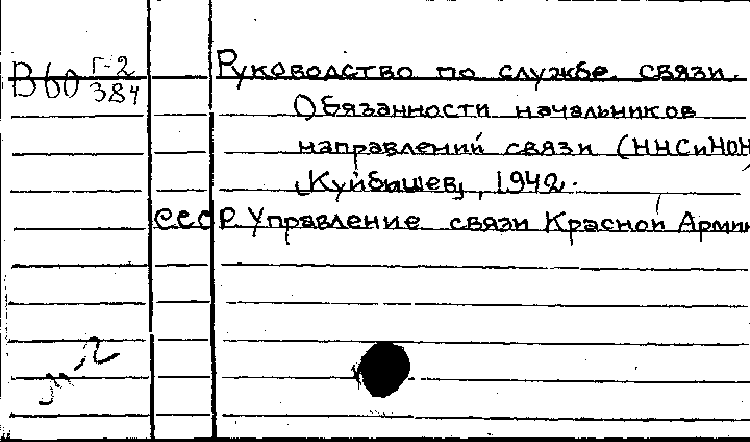 В60 Г-2/384
Руководство по службе связи.
Обязанности начальников
направлений связи (ННСиНОН
[Куйбышев], 1942.
СССР. Управление связи Красной Армии
м-2